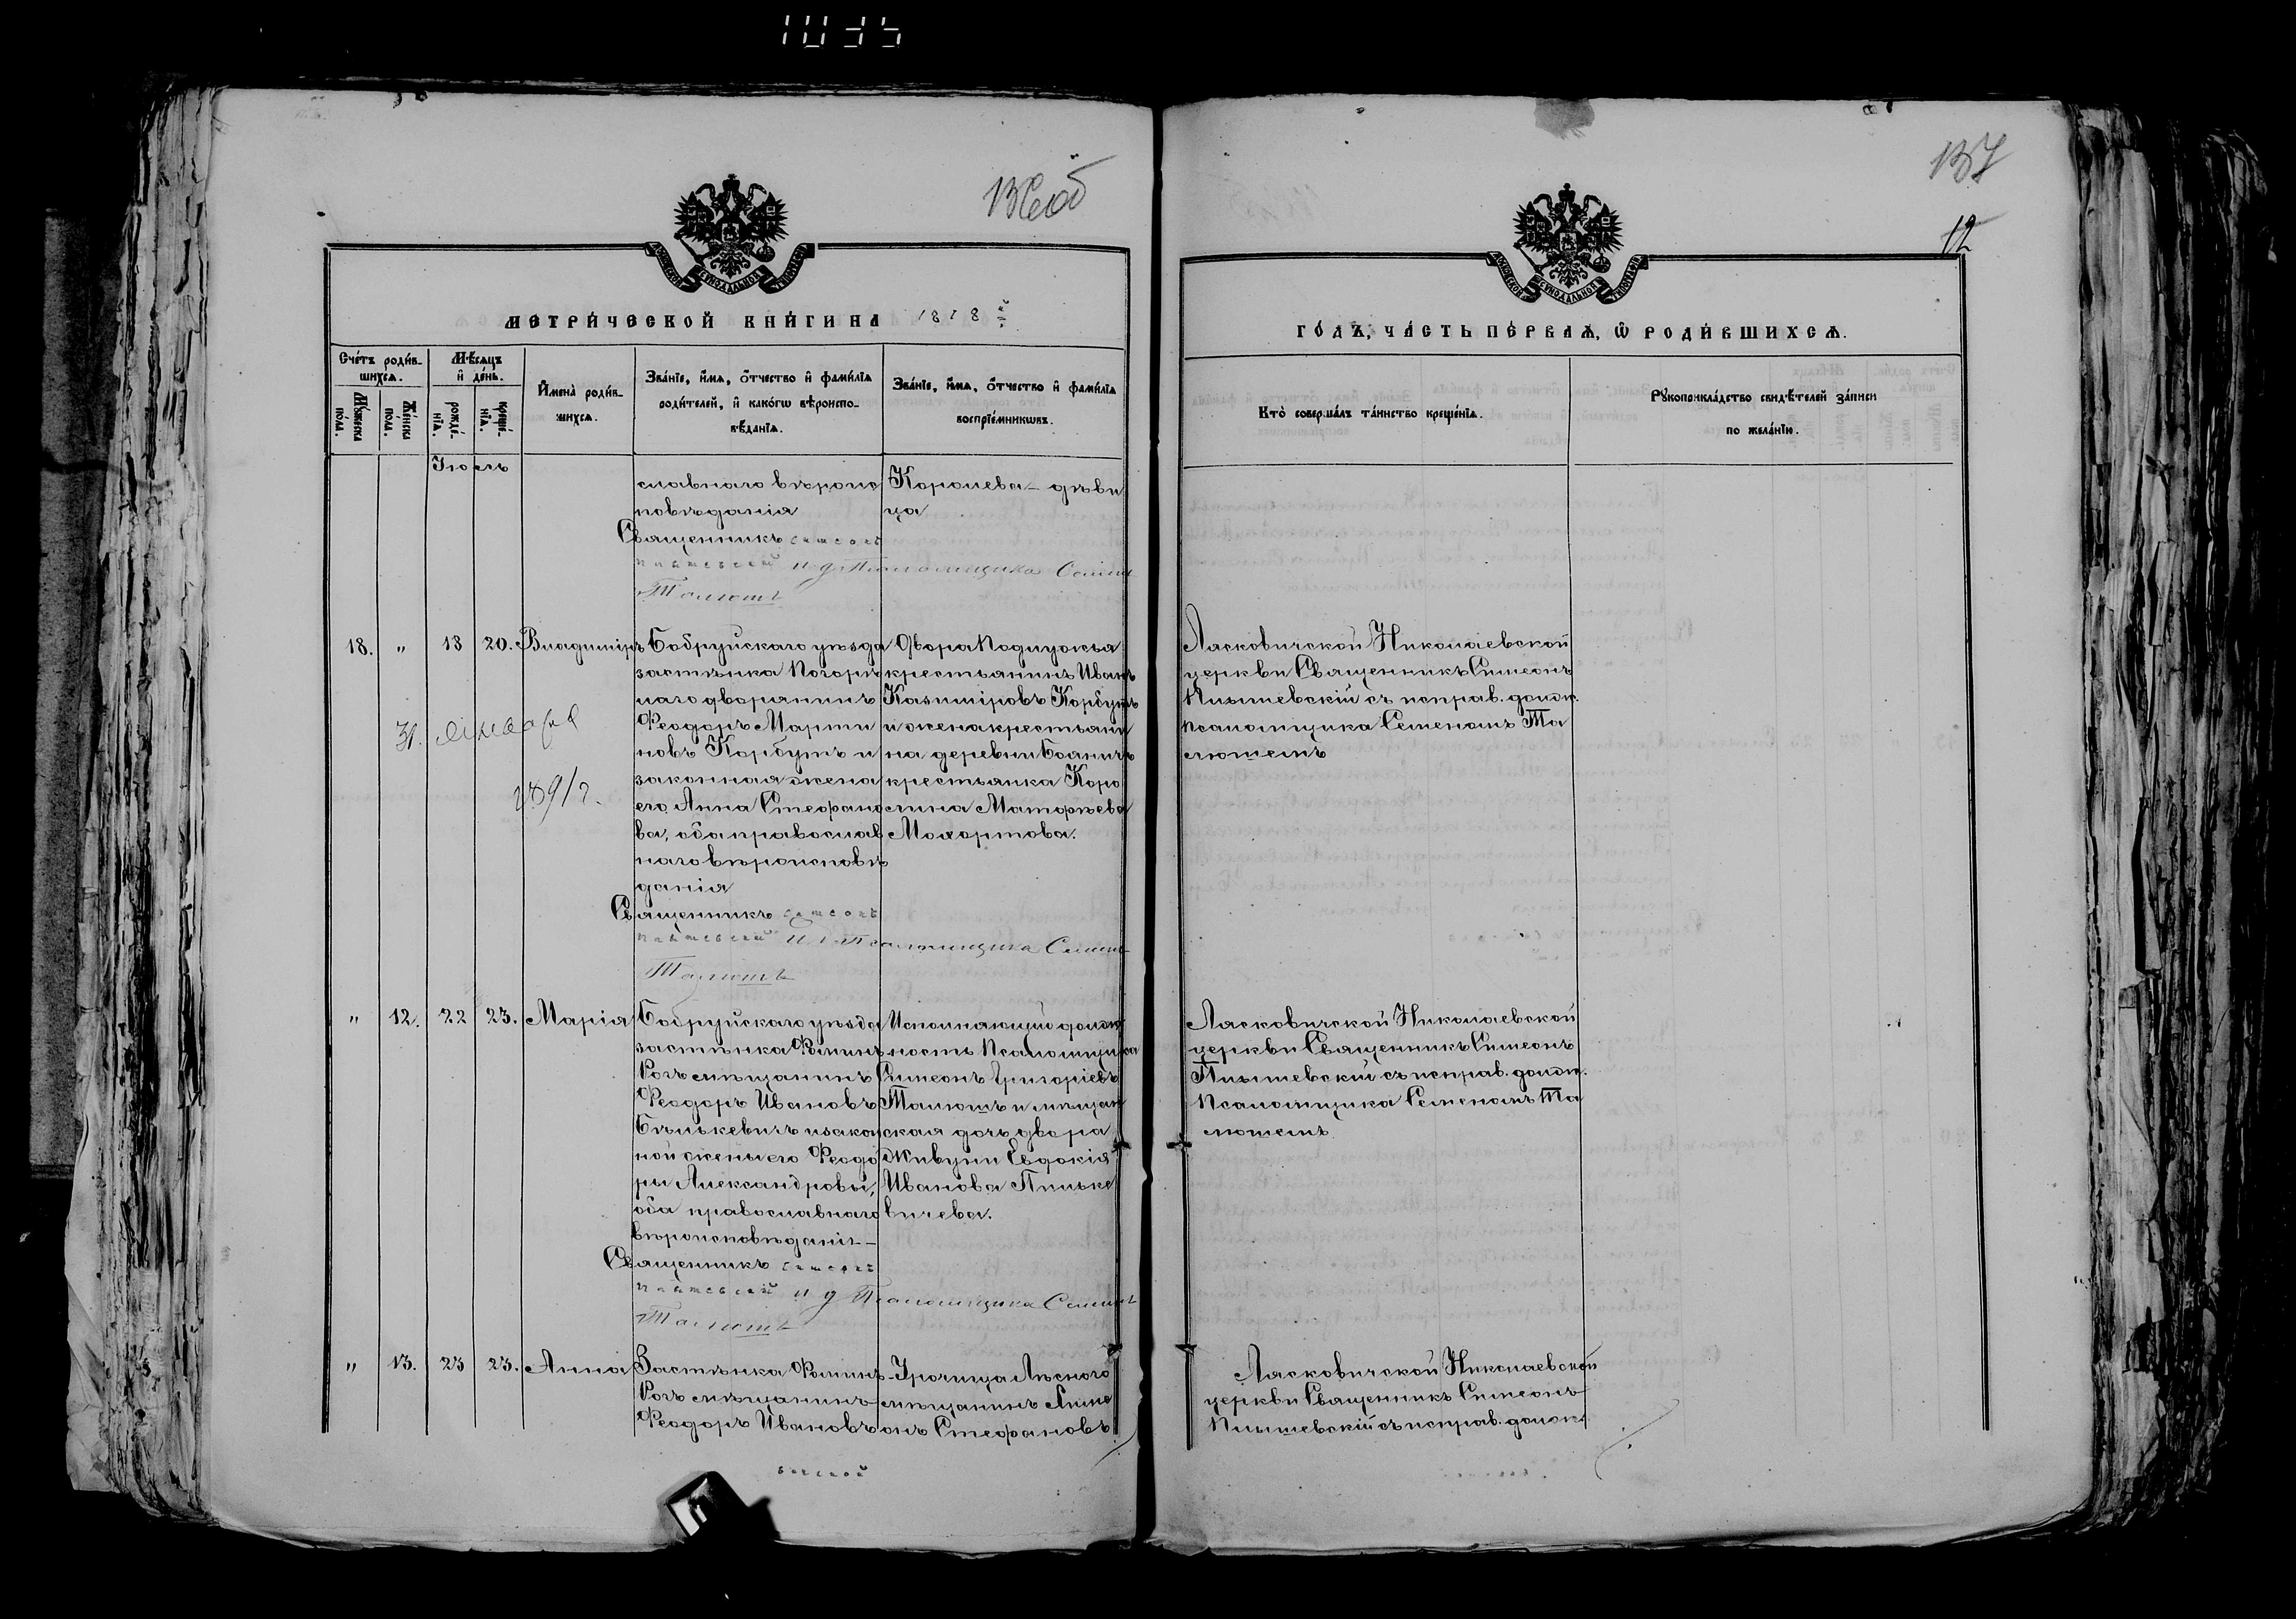 136об
137
12
МОСКОВСКОЙ СѴНОДАЛЬНОЙ ТИПОГРАФІИ
МОСКОВСКОЙ СѴНОДАЛЬНОЙ ТИПОГРАФІИ
МЕТРИ́ЧЕСКОЙ КНИ́ГИ НА 1878 й
ГО́ДЪ, ЧА́СТЬ ПЕ́РВАѦ, Ѡ РОДИ́ВШИХСѦ.
Сче́тъ роди́вшихсѧ.
Мꙋ́жеска по́ла.
Же́нска по́ла.
Мѣ́сѧцъ и де́нь.
рожде́нїѧ.
креще́нїѧ.
И҆мена̀ роди́вшихсѧ.
Зва́нїе, и҆́мѧ, ѻ҆́тчество и҆ фами́лїѧ
роди́телей, и҆ како́гѡ вѣроиспо-
вѣ́данїѧ.
Зва́нїе, и҆́мѧ, ѻ҆́тчество и҆ фами́лїѧ
воспрїе́мникѡвъ.
Кто̀ соверша́лъ та́инство креще́нїѧ.
Рꙋкоприкла́дство свидѣ́телей за́писи
по жела́нїю.
Іюль
славнаго вѣроис
повѣданія
Священникъ Симеонъ
и д Псаломщика Семенъ
Талюшъ
Королева – дѣви
ца
18. " 13 20. Владиміръ
Бобруйскаго уѣзда
застѣнка Погорѣ
лаго дворянинъ
Феодоръ Марти
новъ Карбутъ и
законная жена
его Анна Стефано
ва, оба православ
наго вѣроисповѣ
данія
Священникъ Симеонъ
Псаломщика Семенъ
Талюшъ
Двора Подлужья
крестьянинъ Иванъ
Казиміровъ Корбутъ
и жена крестьяни
на деревни Бояничъ
крестьянка Каро
лина Маторѣева
Мохортова.
Лясковичской Николаевской
церкви Священникъ Симеонъ
съ исправ. долж.
Псаломщика Семеномъ Та
люшемъ
31. Января
1891 г.
" 12. 22 23. Марія
Бобруйскаго уѣзда
застѣнка Фолинъ
Рогъ мѣщанинъ
Феодоръ Ивановъ
Бѣлькевичъ и закон
ной жены его Феодо
ры Александровы,
оба православнаго
вѣроисповѣданія –
Священникъ Симеонъ
и д Псаломщика Семенъ
Талюшъ
Исполняющій долж
ность Псаломщика
Симеонъ Григоріевъ
Талюшъ и мѣщан
ская дочь двора
Живуни Евдокія
Иванова Пильке
вичева.
Лясковичской Николаевской
церкви Священникъ Симеонъ
съ исправ. долж.
Псаломщика Семеномъ Та
люшемъ
" 13. 23 23. Анна
Застѣнка Фолинъ-
Рогъ мѣщанинъ
Феодоръ Ивановъ
Урочища Лѣснаго
мѣщанинъ Симе
онъ Стефановъ
Лясковичской Николаевской
церкви Священникъ Симеонъ
съ исправ. долж.